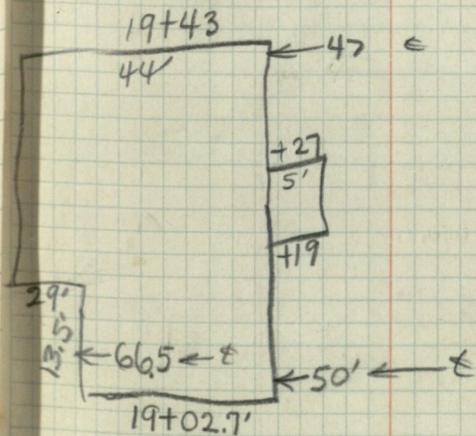 19+43
44'
47
+27
5'
+19
29'
13.5'
66.5 t
50' t
19+02.7'